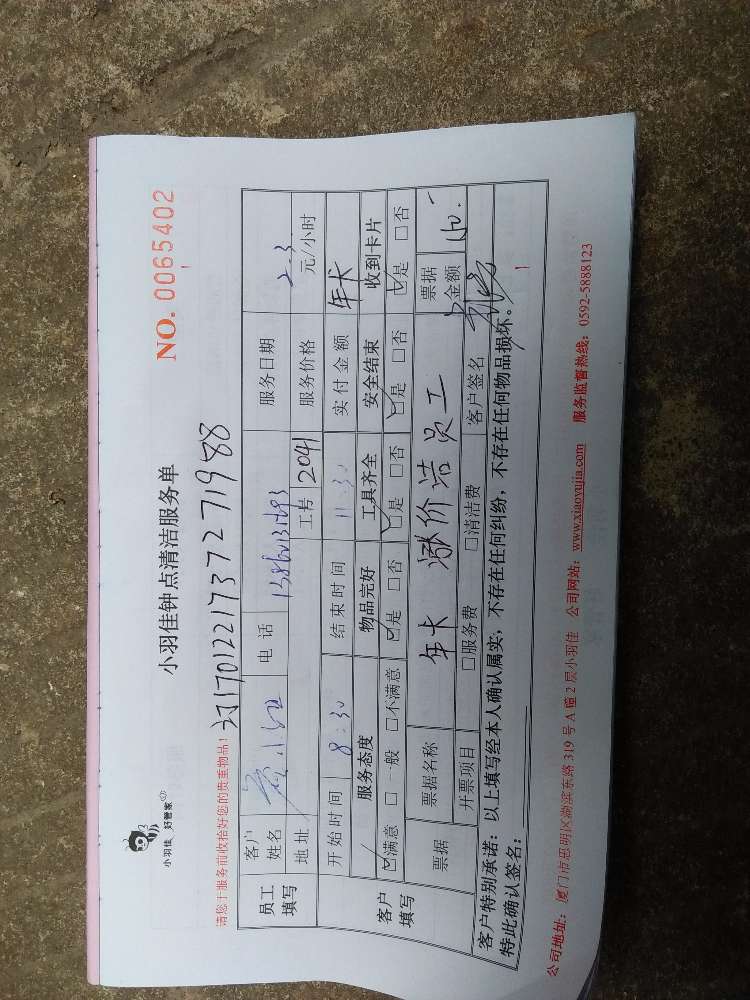 小羽佳 好管家
小羽佳钟点清洁服务单
NO. 0065402
请您于服务前收拾好您的贵重物品！
订1701221737271988
员工填写 客户姓名 电话 服务日期 2.3
地址 工号 2041 服务价格 元/小时
客户填写 开始时间 8:30 结束时间 11:30 实付金额 年卡
服务态度 物品完好 工具齐全 安全结束 收到卡片
☑满意 □一般 □不满意 ☑是 □否 ☑是 □否 ☑是 □否 ☑是 □否
票据 票据名称 年卡 涨价洁员工 票据金额
开票项目 □服务费 □清洁费 客户签名
客户特别承诺：以上填写经本人确认属实，不存在任何纠纷，不存在任何物品损坏。
特此确认签名：
公司地址：厦门市思明区湖滨东路 319 号 A 幢 2 层小羽佳 公司网站：www.xiaoyujia.com 服务监督热线：0592-5888123